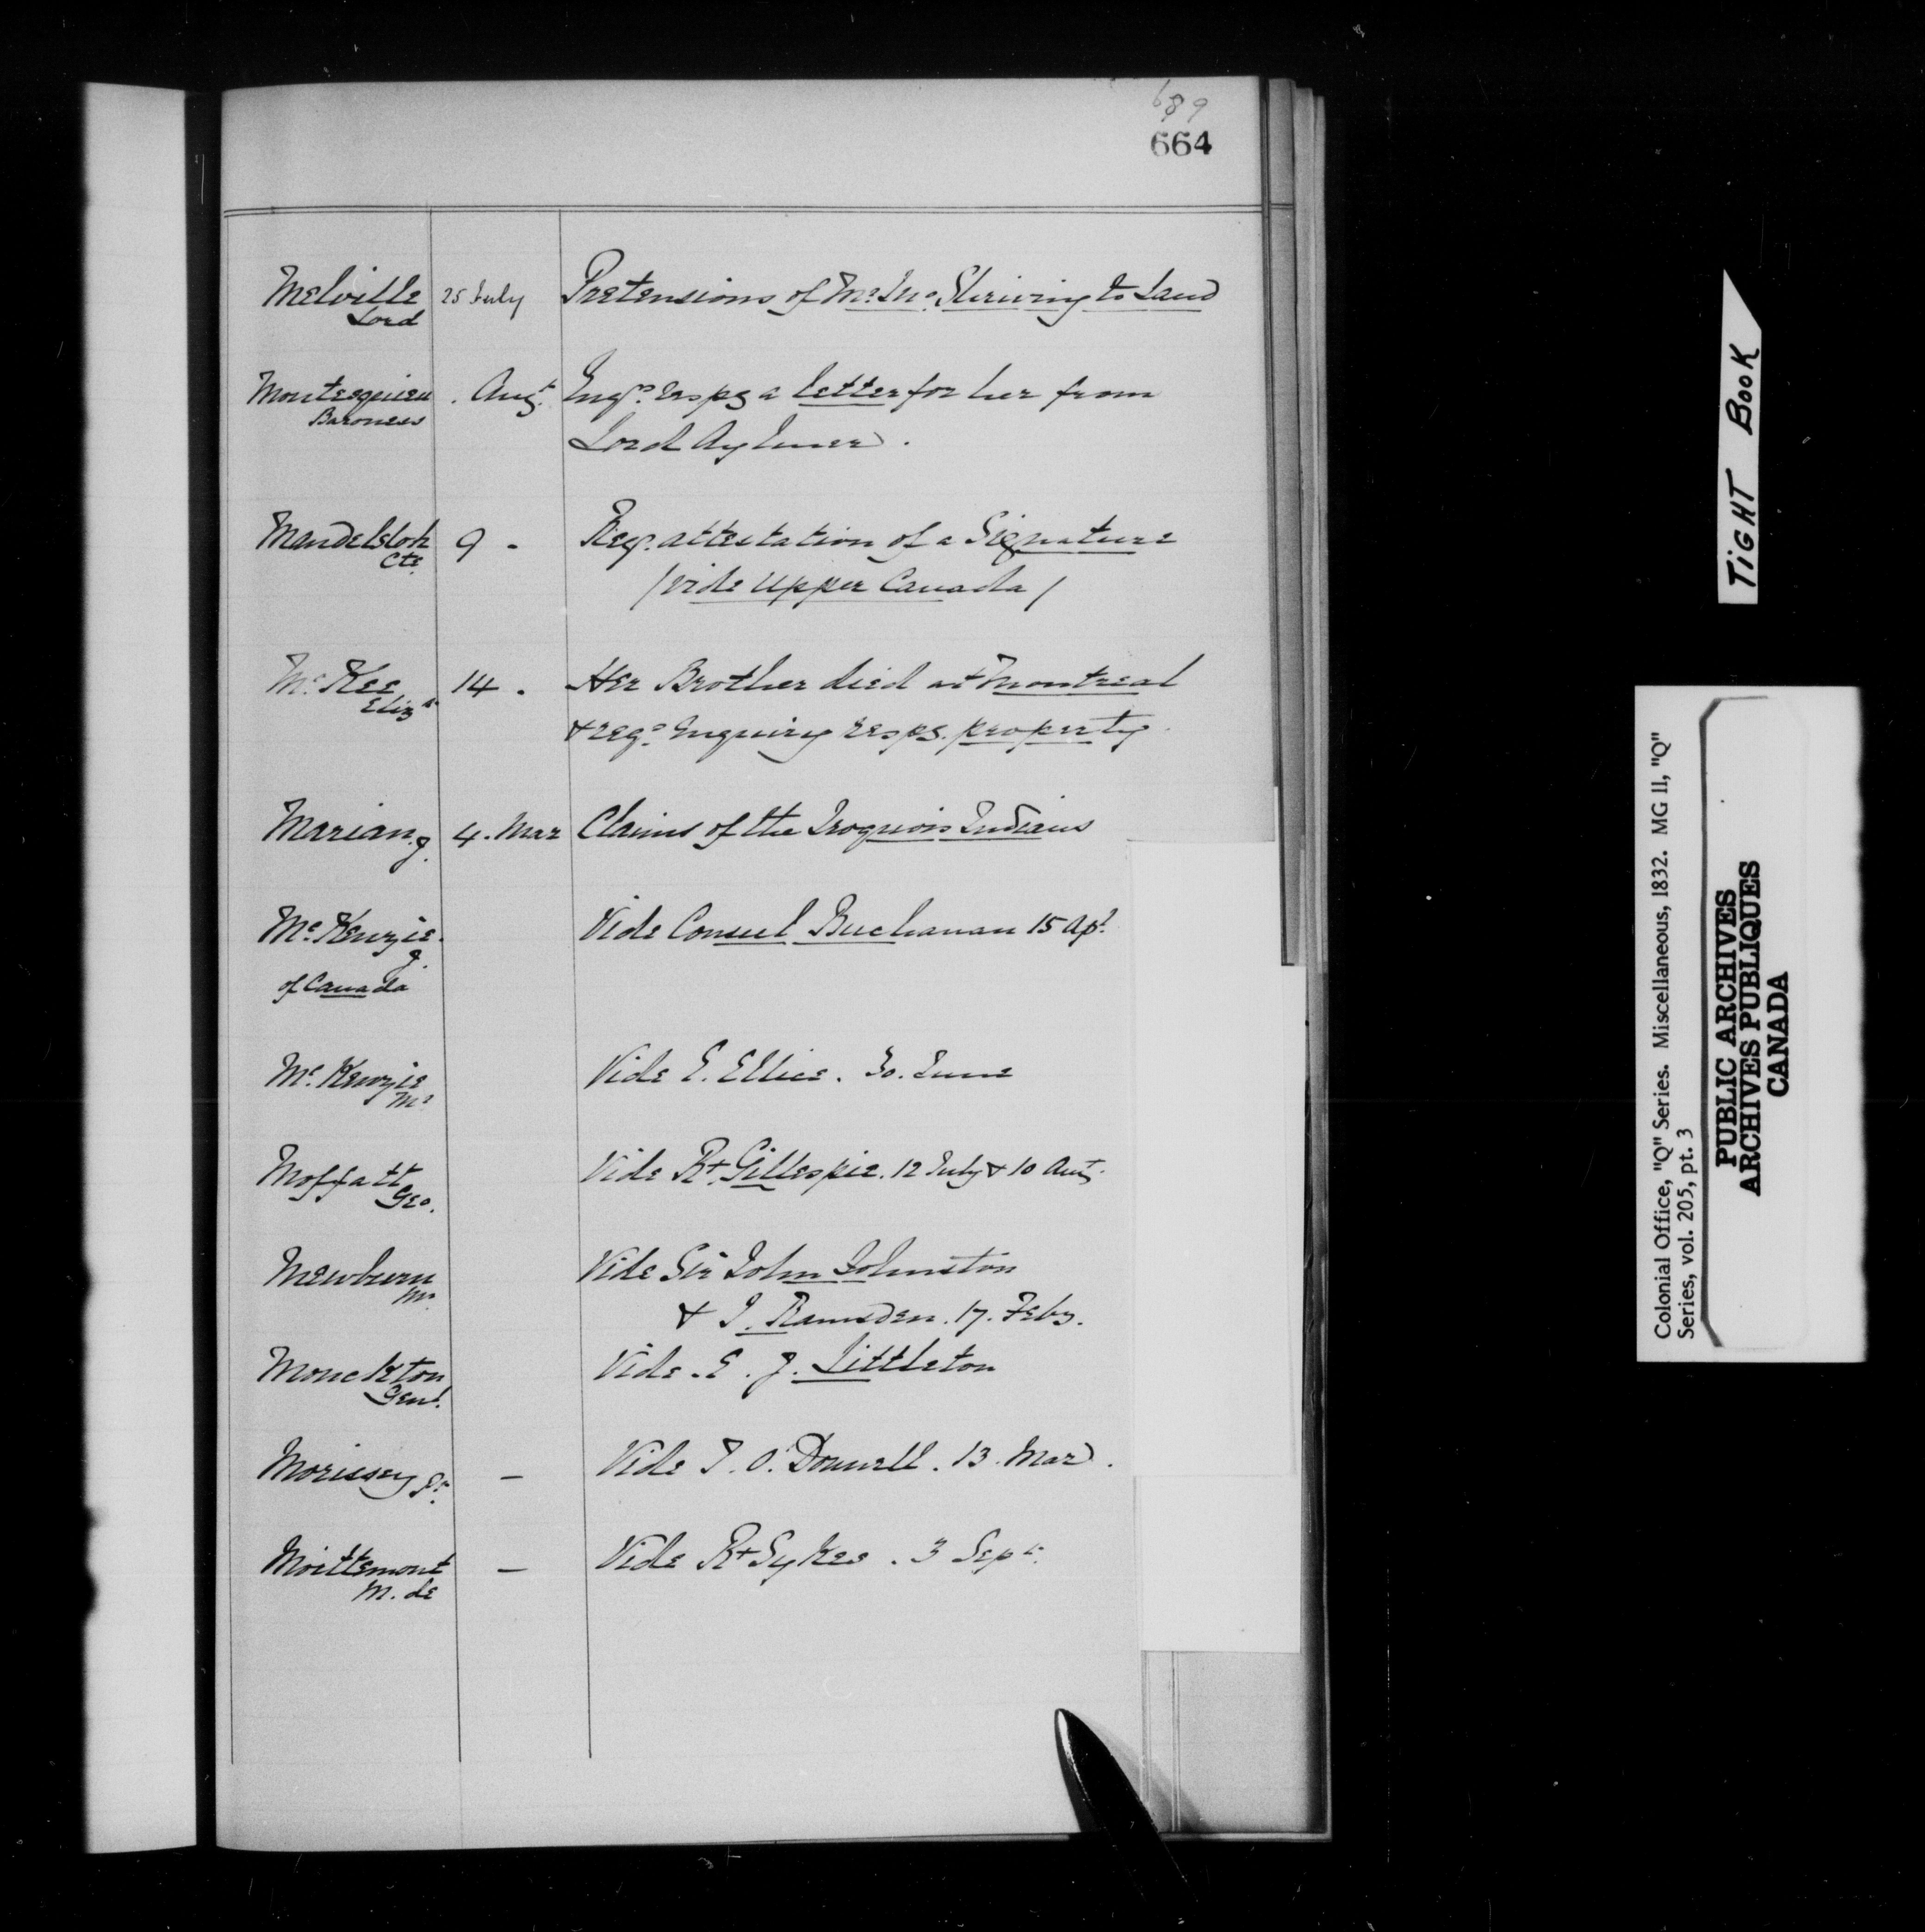 689
664
Melville 25 July Pretensions of Mr. Mc. Shriving to Land
Lord
Montesquieu . Augt. Inqs. respg a letter for her from
Baroness
Lord Aylmer.
Mandelsloh 9 - Req. attestation of a Signature
Cte.
/ vide Upper Canada /
Mc. Kee, 14 . Her Brother died at Montreal
Elizh.
& reqs. Inquiry respg. property.
Marian. J. 4. Mar Claims of the Iroquois Indians
Mc. Kenzie. Vide Consul Buchanan 15 Apl.
J.
of Canada
Mc. Kenzie Vide E. Ellice. 30. June
Mr.
Moffatt Vide Rt. Gillespie. 12 July & 10 Aug.
Geo.
Mewburn Vide Sir John Johnston
Mr.
& J. Ramsden. 17. Feby.
Monckton Vide - E. J. Littleton
Genl.
Morissey Pr. - Vide T. O'Donnell. 13. Mar.
Moittemont - Vide Rt Sykes. 3 Sept.
M. de
TIGHT BOOK
Colonial Office, "Q" Series. Miscellaneous, 1832. MG 11, "Q"
Series, vol. 205, pt. 3
PUBLIC ARCHIVES
ARCHIVES PUBLIQUES
CANADA